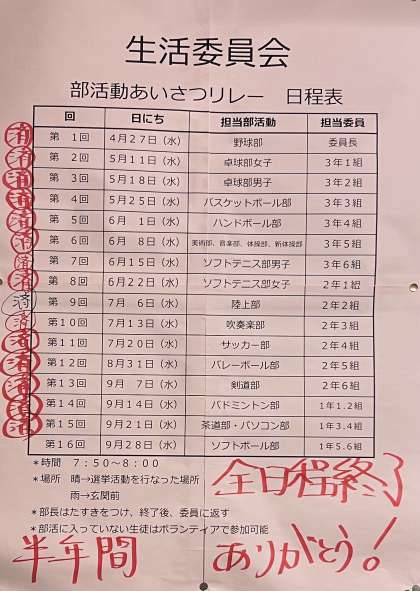 生活委員会
部活動あいさつリレー 日程表
回 日にち 担当部活動 担当委員
済 第 1回 4月27日（水） 野球部 委員長
済 第 2回 5月11日（水） 卓球部女子 3年1組
済 第 3回 5月18日（水） 卓球部男子 3年2組
済 第 4回 5月25日（水） バスケットボール部 3年3組
済 第 5回 6月 1日（水） ハンドボール部 3年4組
済 第 6回 6月 8日（水） 美術部、音楽部、体操部、新体操部 3年5組
済 第 7回 6月15日（水） ソフトテニス部男子 3年6組
済 第 8回 6月22日（水） ソフトテニス部女子 2年1組
済 第 9回 7月 6日（水） 陸上部 2年2組
済 第10回 7月13日（水） 吹奏楽部 2年3組
済 第11回 7月20日（水） サッカー部 2年4組
済 第12回 8月31日（水） バレーボール部 2年5組
済 第13回 9月 7日（水） 剣道部 2年6組
済 第14回 9月14日（水） バドミントン部 1年1.2組
済 第15回 9月21日（水） 茶道部・パソコン部 1年3.4組
第16回 9月28日（水） ソフトボール部 1年5.6組
＊時間 7：50～8：00
＊場所 晴→選挙活動を行なった場所
雨→玄関前
＊部長はたすきをつけ、終了後、委員に返す
＊部活に入っていない生徒はボランティアで参加可能
全日程終了
半年間 ありがとう！